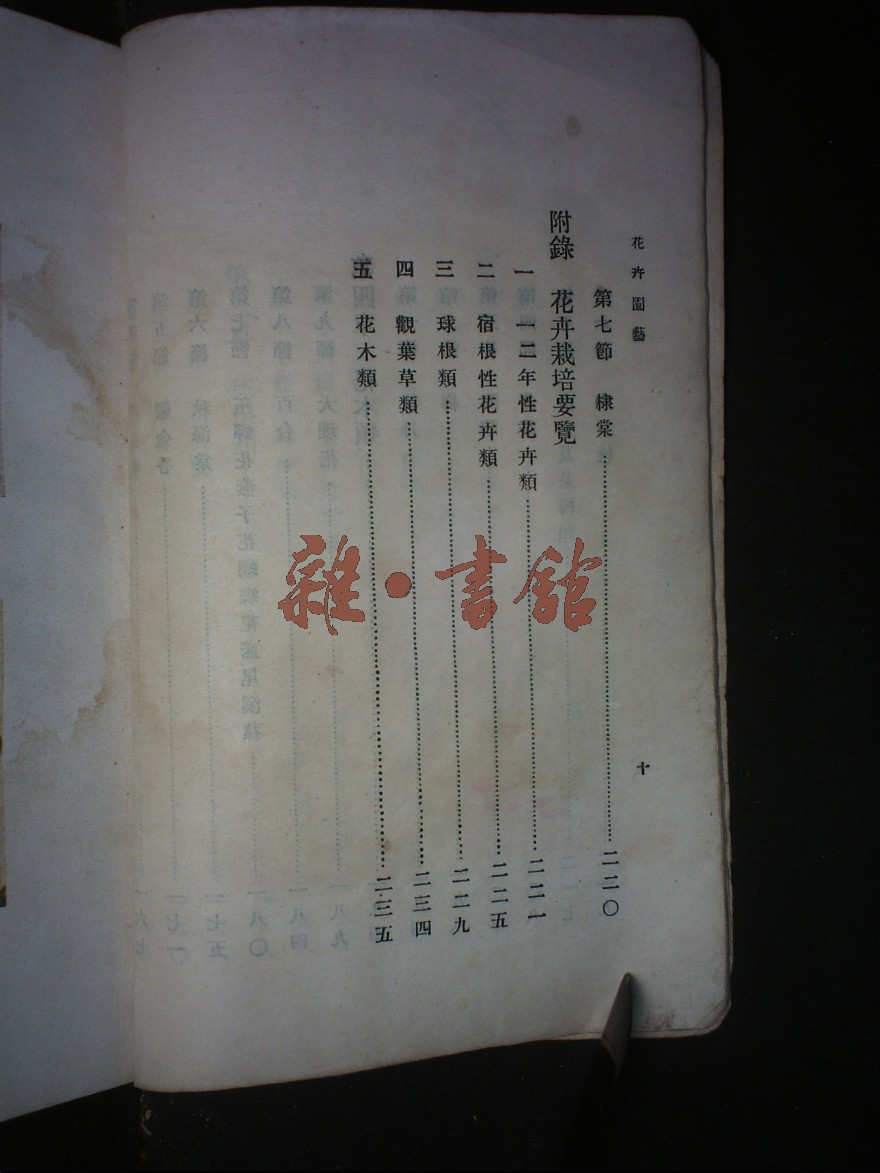 花卉園藝
十
第七節 棣棠……二二〇
附錄 花卉栽培要覽
一 一二年性花卉類……二二一
二 宿根性花卉類……二二五
三 球根類……二二九
四 觀葉草類……二三四
五 花木類……二三五
雜·書館